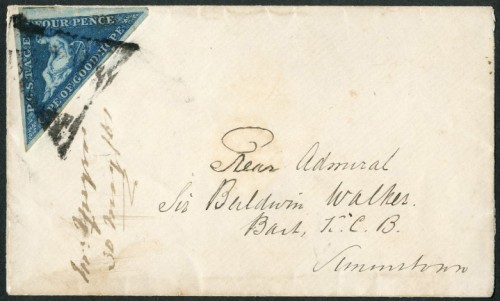 POSTAGE
FOUR PENCE
CAPE OF GOOD HOPE
Rear Admiral
Sir Baldwin Walker.
Bart, K. C. B.
Simonstown